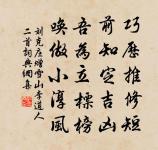 巧歷推修短
前知定吉凶
吾為立標榜
喚做小淳風
劉克庄贈雪山李道人
二首詞典網喜